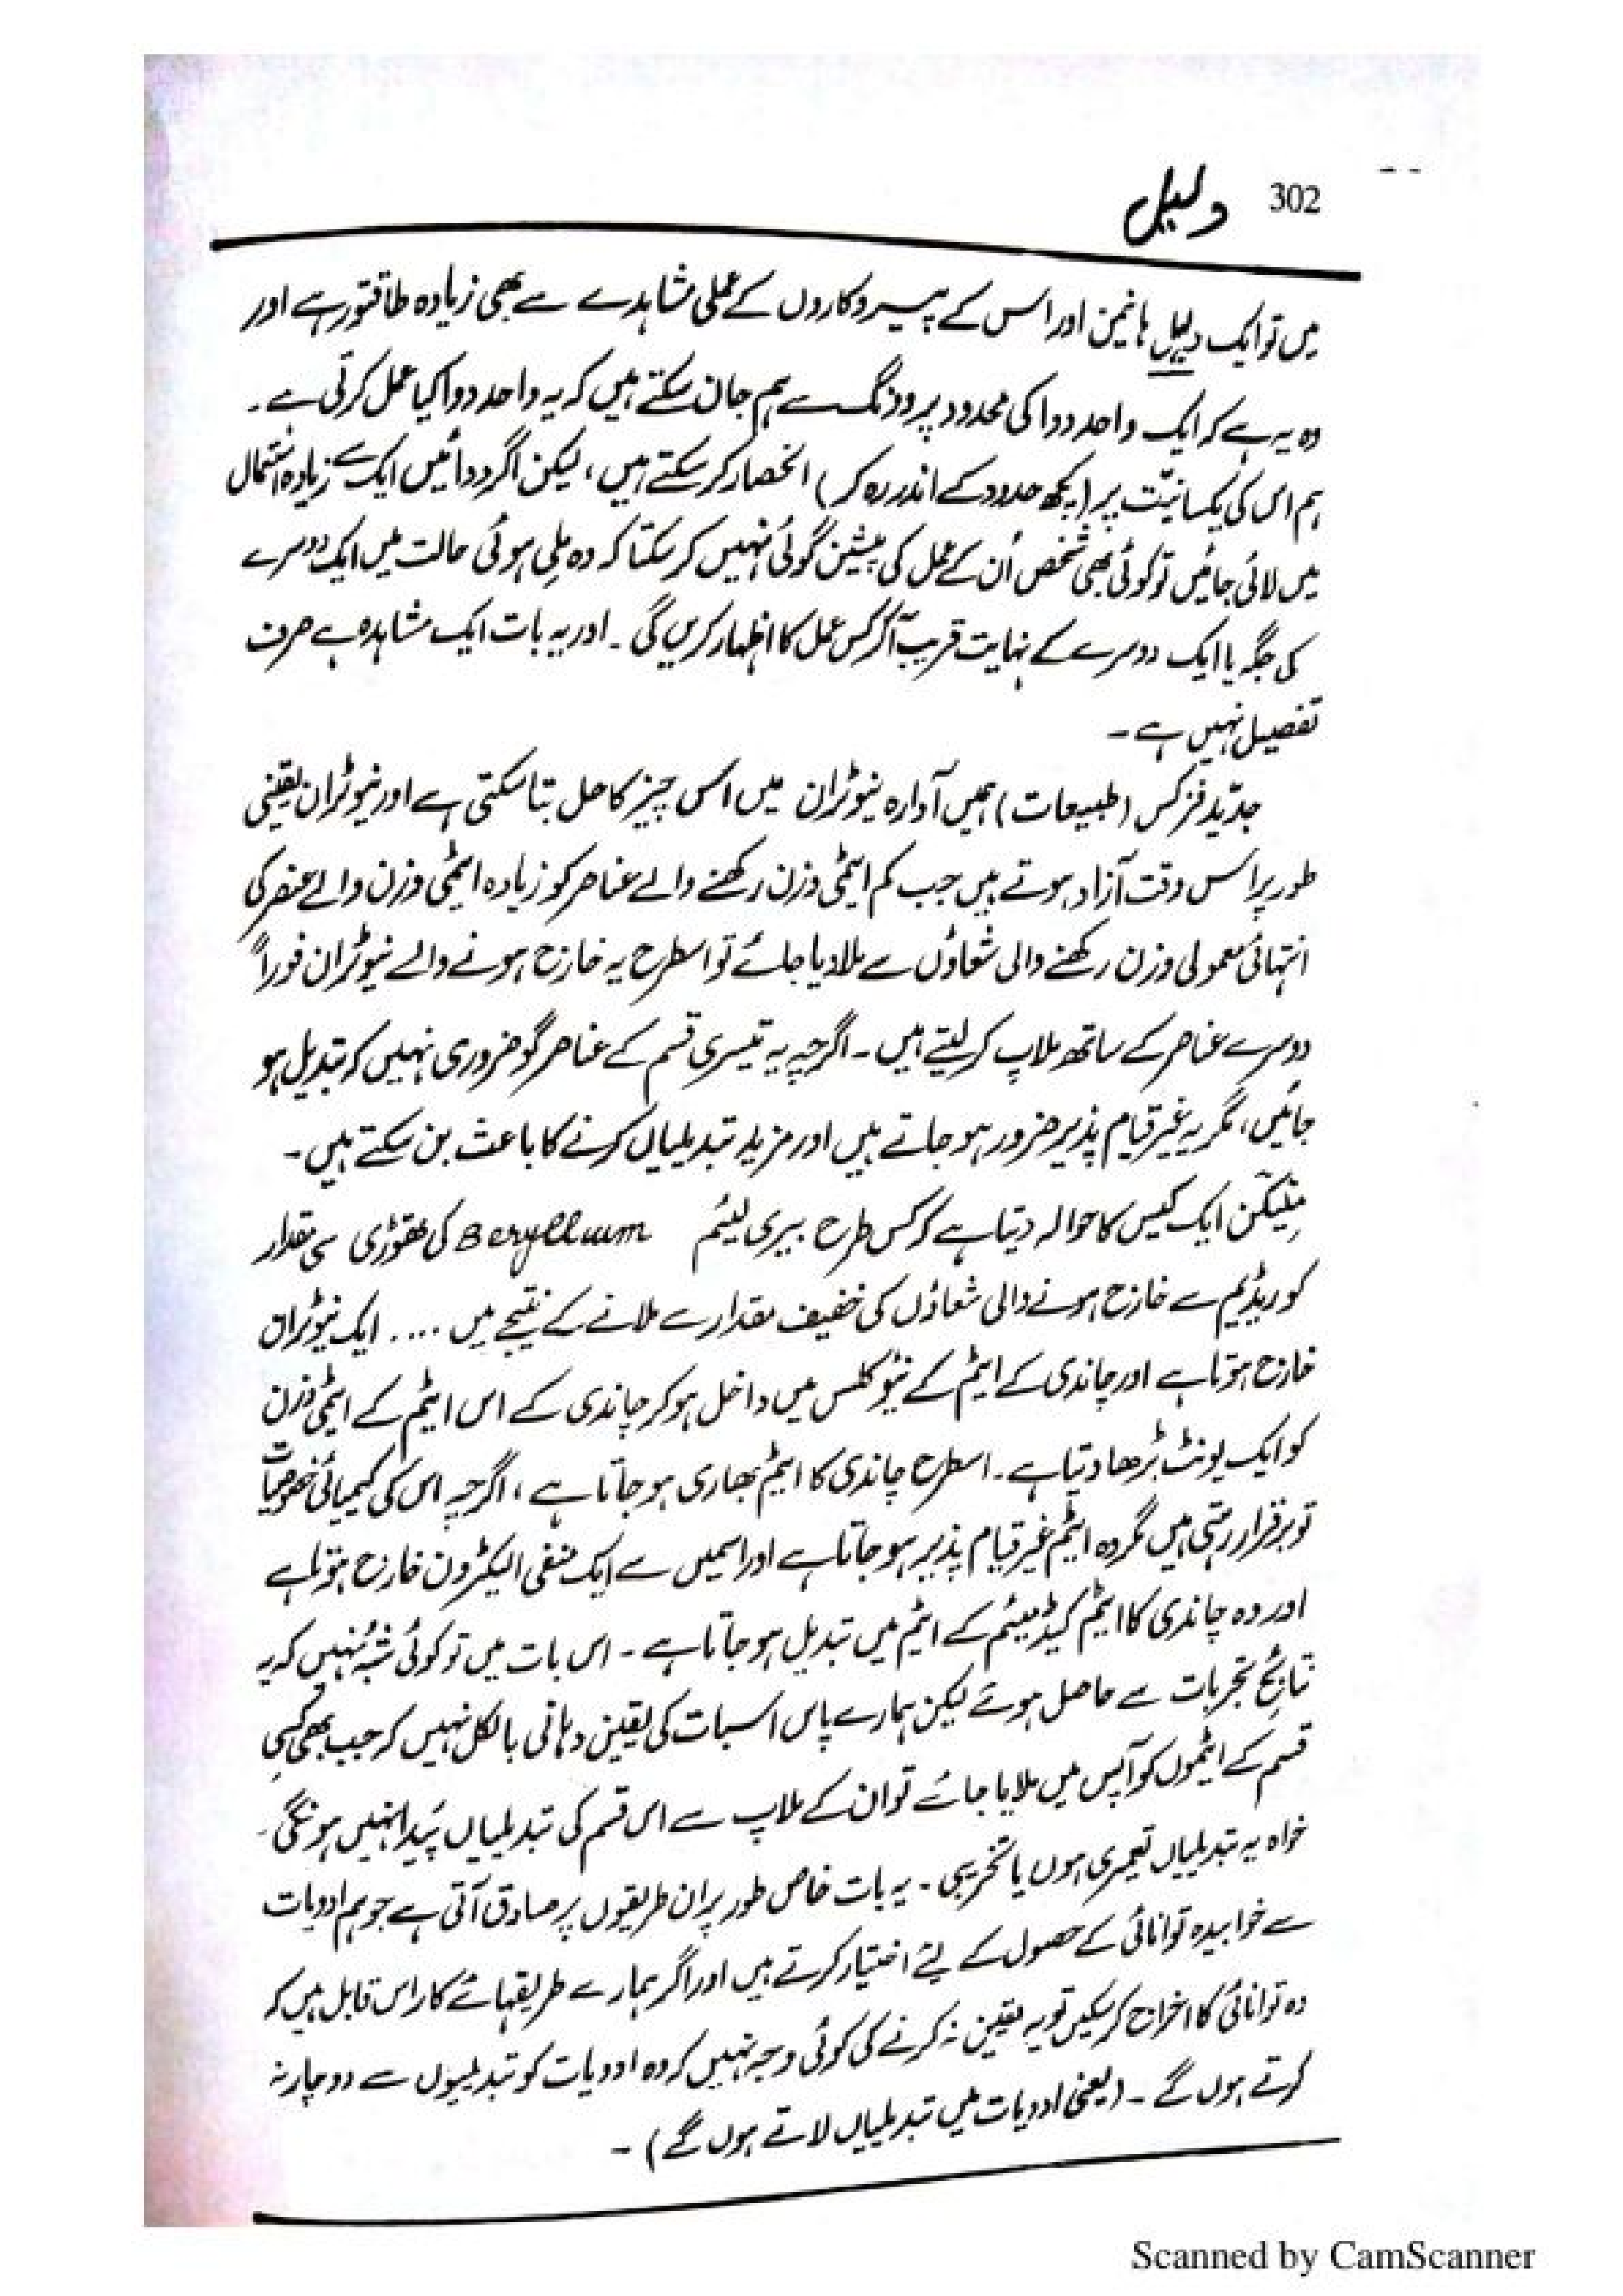 302 دلیل
میں تو ایک دلیل ہانمین اور اس کے پیروکاروں کے عملی مشاہدے سے بھی زیادہ طاقتور ہے اور
وہ یہ ہے کہ ایک واحد دوا کی محدود پروونگ سے ہم جان سکتے ہیں کہ یہ واحد دوا کیا عمل کرتی ہے۔
ہم اس کی یکسانیّت پر (کچھ حدود کے اندر رہ کر) انحصار کر سکتے ہیں، لیکن اگر دوائیں ایک سے زیادہ استعمال
میں لائی جائیں تو کوئی بھی شخص اُن کے عمل کی پیشین گوئی نہیں کر سکتا کہ وہ مِلی ہوئی حالت میں ایک دوسرے
کی جگہ یا ایک دوسرے کے نہایت قریب آکر کس عمل کا اظہار کریں گی۔ اور یہ بات ایک مشاہدہ ہے صرف
تفصیل نہیں ہے۔
جدید فزکس (طبیعات) ہمیں آوارہ نیوٹران میں اس چیز کا حل بتا سکتی ہے اور نیوٹران یقینی
طور پر اس وقت آزاد ہوتے ہیں جب کم ایٹمی وزن رکھنے والے عناصر کو زیادہ ایٹمی وزن والے عنصر کی
انتہائی معمولی وزن رکھنے والی شعاؤں سے ملا دیا جائے تو اسطرح یہ خارج ہونے والے نیوٹران فوراً
دوسرے عناصر کے ساتھ ملاپ کر لیتے ہیں۔ اگرچہ یہ تیسری قسم کے عناصر گو ضروری نہیں کہ تبدیل ہو
جائیں، مگر یہ غیر قیام پذیر ضرور ہو جاتے ہیں اور مزید تبدیلیاں کرنے کا باعث بن سکتے ہیں۔
مِلیکَن ایک کیس کا حوالہ دیتا ہے کہ کس طرح بیری لیئم Beryllium کی تھوڑی سی مقدار
کو ریڈیم سے خارج ہونے والی شعاؤں کی خفیف مقدار سے ملانے کے نتیجے میں .... ایک نیوٹران
خارج ہوتا ہے اور چاندی کے ایٹم کے نیوکلس میں داخل ہو کر چاندی کے اس ایٹم کے ایٹمی وزن
کو ایک یونٹ بڑھا دیتا ہے۔ اسطرح چاندی کا ایٹم بھاری ہو جاتا ہے، اگرچہ اس کی کیمیائی خصوصیات
تو برقرار رہتی ہیں مگر وہ ایٹم غیر قیام پذیر ہو جاتا ہے اور اسمیں سے ایک منفی الیکٹرون خارج ہوتا ہے
اور وہ چاندی کا ایٹم کیڈمیئم کے ایٹم میں تبدیل ہو جاتا ہے۔ اس بات میں تو کوئی شُبہ نہیں کہ یہ
نتائج تجربات سے حاصل ہوئے لیکن ہمارے پاس اسبات کی یقین دہانی بالکل نہیں کہ جب بھی کسی
قسم کے ایٹموں کو آپس میں ملایا جائے تو ان کے ملاپ سے اس قسم کی تبدیلیاں پَیدا نہیں ہونگی۔
خواہ یہ تبدیلیاں تعمیری ہوں یا تخریبی۔ یہ بات خاص طور پر ان طریقوں پر صادق آتی ہے جو ہم ادویات
سے خوابیدہ توانائی کے حصول کے لئے اختیار کرتے ہیں اور اگر ہمارے طریقہائے کار اس قابل ہیں کہ
وہ توانائی کا اخراج کر سکیں تو یہ یقین نہ کرنے کی کوئی وجہ نہیں کہ وہ ادویات کو تبدیلیوں سے دوچار نہ
کرتے ہوں گے۔ (یعنی ادویات میں تبدیلیاں لاتے ہوں گے)۔
Scanned by CamScanner